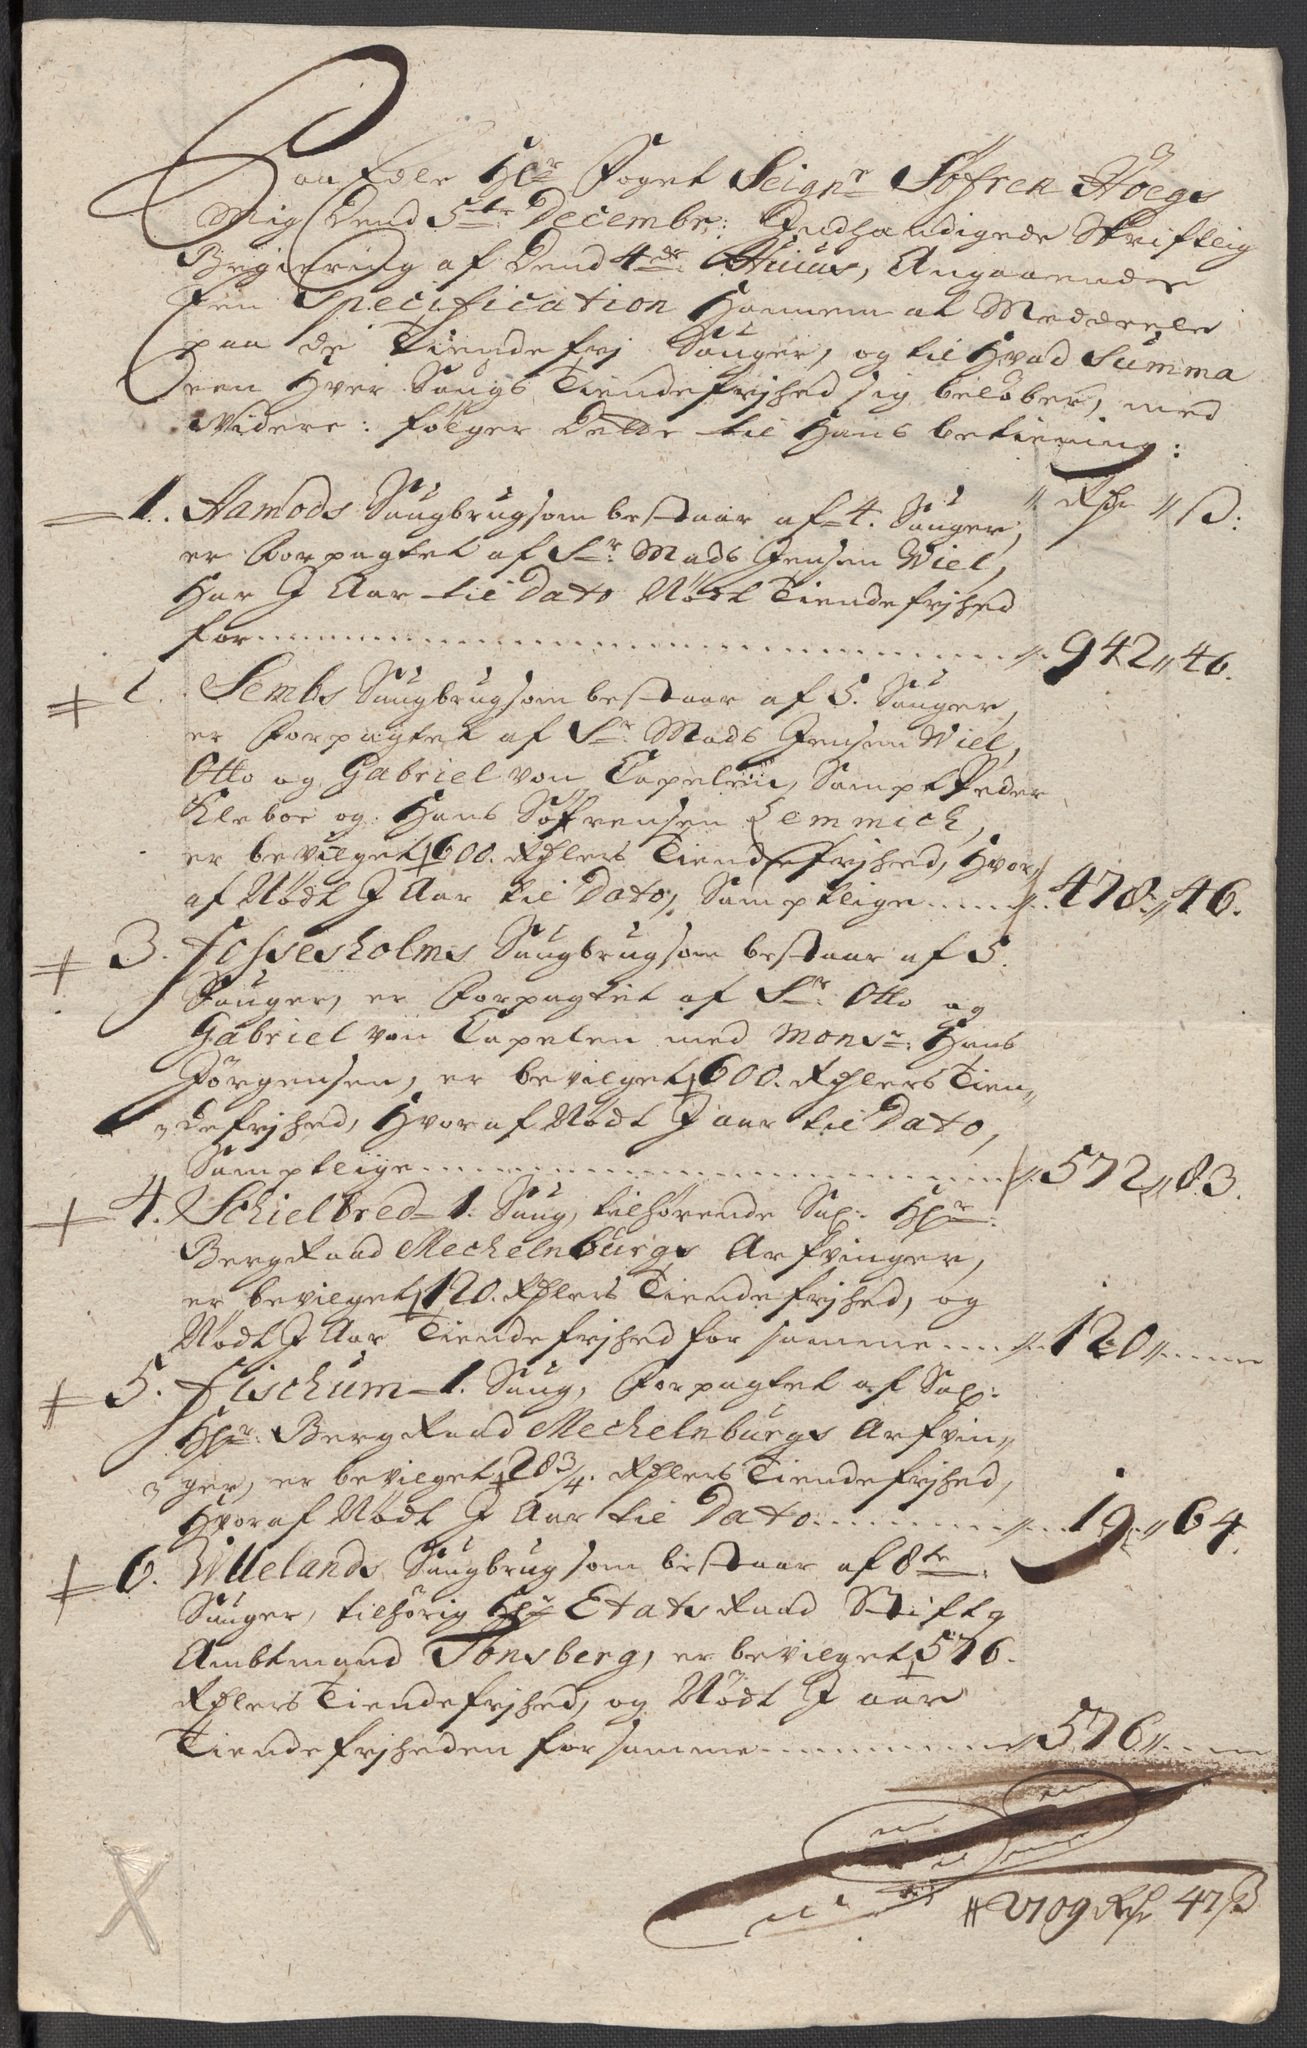 Paa Edle Hr Foget Seignr Söfren Höegs
Mig Dend 5te Decembr: Indhændigede Skriftlig
Begiæring af Dend 4de Huius, Angaaende
Een Specification Hannem at Meddeele
paa de Tiendefrj Sauger, og til Hvad Summa
een Hver Saugs Tiendefrjhed sig belöber, med
Widere: fölger Dette til Hans betiening:
Rdr ß:
1. Aamods Saugbrug som bestaar af 4. Sauger,
er Forpagtet af Sr: Mads Jensen Wiel,
Har J Aar til Dato Nödt Tiendefrjhed
for 942 46.
2. Sembs Saugbrug som bestaar af 5. Sauger,
er Forpagtet af Sr: Mads Jensen Wiel,
Otto og Gabriel von Capelen, Sampt Peder
Kleboe og Hans Söfrensen Lemmich,
er bevilget 600. Rdlers Tiendefrjhed, Hvor
af Nödt J Aar til Dato, Samptlige 478 46.
3. Fossesholms Saugbrug som bestaar af 5.
Sauger, er Forpagtet af Sr: Otto og
Gabriel von Capelen med Monsr: Hans
Jörgensen, er bevilget 600. Rdlers Tien
defrjhed, Hvoraf Nödt J aar til Dato,
Samptlige 572 83.
4. Schielbred 1. Saug, tilhörende Sal: Hr:
BergRaad Mechelnburgs Arfvinger,
er bevilget 120. Rdlers Tiendefrjhed, og
Nödt J Aar Tiendefrjhed for samme 120
5. Fischum 1. Saug, Forpagtet af Sal:
Hr: BergRaad Mechelnburgs Arfvin
ger, er bevilget 283/4. Rdlers Tiendefrjhed,
Hvoraf Nödt J Aar til Dato 19 64.
6. Willelands Saugbrug som bestaar af 8te
Sauger, tilhörig Hr EtatsRaad Stift
Ambtmand Tonsberg, er bevilget 576.
Rdlers Tiendefrjhed, og Nödt J aar
Tiendefrjheden for samme 576
2709 Rdr 47 ß